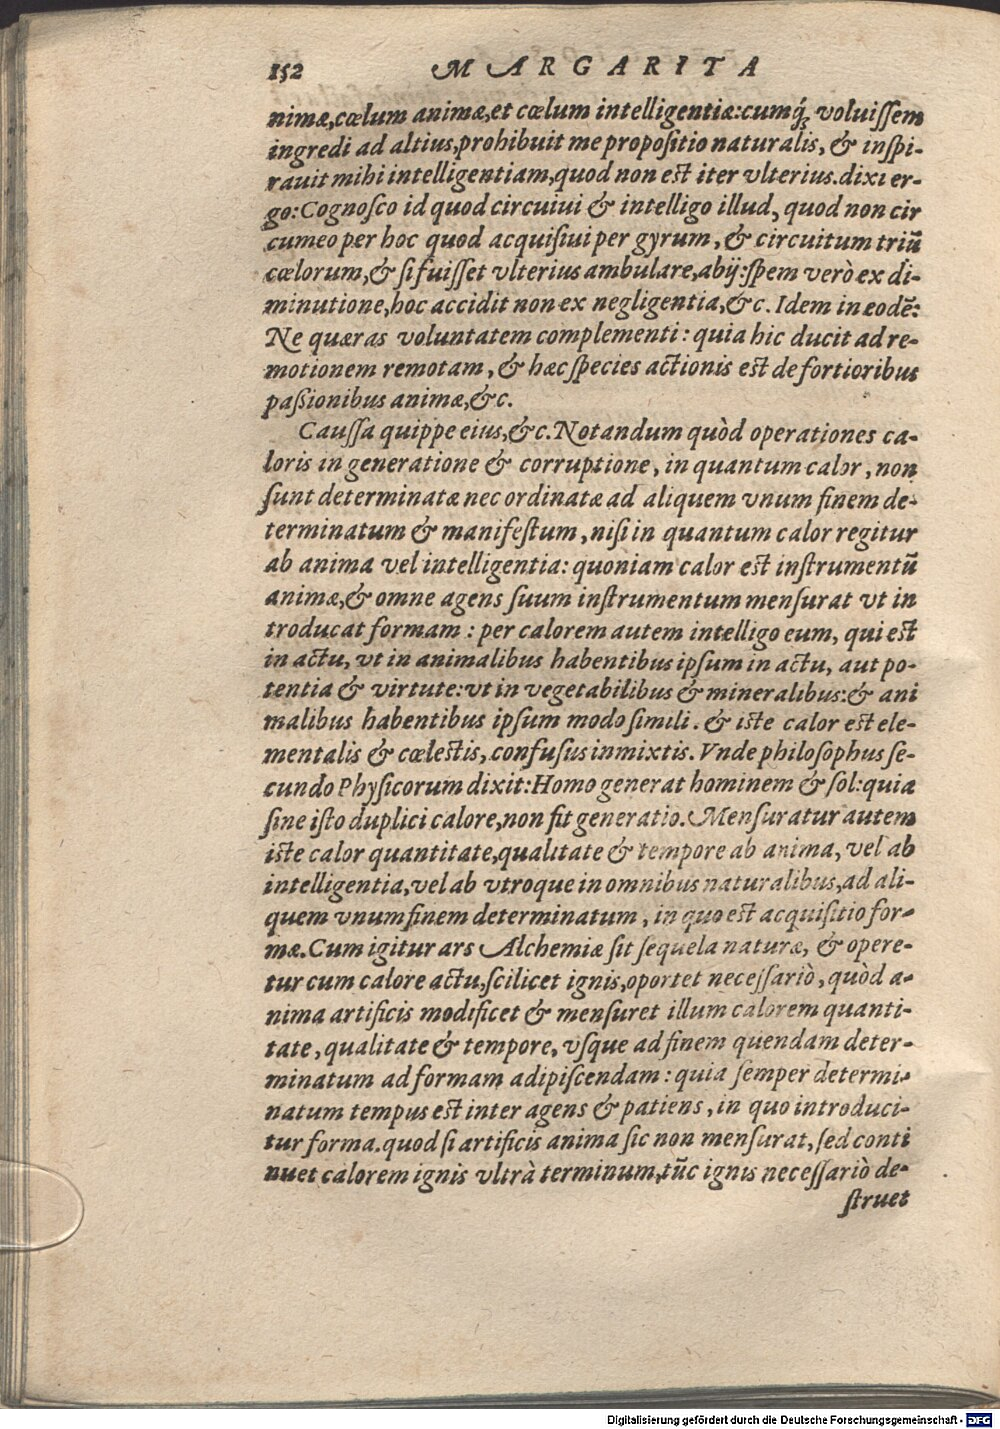 152 MARGARITA
nimæ,cœlum animæ,et cœlum intelligentiæ:cumq́ꝫ voluiſſem
ingredi ad altius,prohibuit me propoſitio naturalis, & inſpi-
rauit mihi intelligentiam,quod non est iter vlterius.dixi er-
go:Cognoſco id quod circuiui & intelligo illud, quod non cir
cumeo per hoc quod acquiſiui per gyrum, & circuitum triũ
cœlorum,& ſi fuiſſet vlterius ambulare,abij:ſpem verò ex di-
minutione,hoc accidit non ex negligentia,&c. Idem in eodẽ:
Ne quæras voluntatem complementi: quia hic ducit ad re-
motionem remotam, & hæc ſpecies actionis est de fortioribus
paßionibus animæ,&c.
Cauſſa quippe eius,&c. Notandum quòd operationes ca-
loris in generatione & corruptione, in quantum calor, non
ſunt determinatæ nec ordinatæ ad aliquem vnum finem de-
terminatum & manifeſtum, niſi in quantum calor regitur
ab anima vel intelligentia: quoniam calor est inſtrumentũ
animæ,& omne agens ſuum inſtrumentum menſurat vt in
troducat formam: per calorem autem intelligo eum, qui est
in actu, vt in animalibus habentibus ipſum in actu, aut po-
tentia & virtute:vt in vegetabilibus & mineralibus:& ani
malibus habentibus ipſum modo ſimili. & iste calor est ele-
mentalis & cœlestis, confuſus in mixtis. Vnde philoſophus ſe-
cundo Phyſicorum dixit:Homo generat hominem & ſol:quia
ſine iſto duplici calore,non fit generatio. Menſuratur autem
iste calor quantitate,qualitate & tempore ab anima, vel ab
intelligentia,vel ab vtroque in omnibus naturalibus,ad ali-
quem vnum finem determinatum, in quo est acquiſitio for-
mæ.Cum igitur ars Alchemiæ ſit ſequela naturæ, & opere-
tur cum calore actu,ſcilicet ignis,oportet neceſſariò, quòd a-
nima artificis modificet & menſuret illum calorem quanti-
tate, qualitate & tempore, vſque ad finem quendam deter-
minatum ad formam adipiſcendam: quia ſemper determi-
natum tempus est inter agens & patiens, in quo introduci-
tur forma.quod ſi artificis anima ſic non menſurat, ſed conti
nuet calorem ignis vltrà terminum,tũc ignis neceſſariò de-
ſtruet
Digitalisierung gefördert durch die Deutsche Forschungsgemeinschaft - DFG